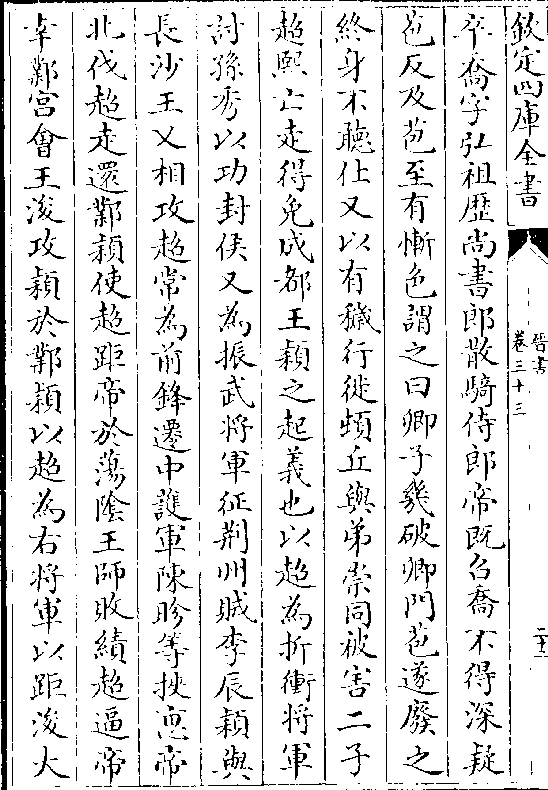 欽定四庫全書
晉書
卷三十三
卒喬字弘祖歷尚書郎散騎侍郎帝既召喬不得深疑
苞反及苞至有慚色謂之曰卿子幾破卿門苞遂廢之
終身不聽仕又以有穢行徙頓丘與弟崇同被害二子
超熙亡走得免成都王穎之起義也以超為折衝將軍
討孫秀以功封侯又為振武將軍征荆州賊李辰穎與
長沙王乂相攻超常為前鋒遷中護軍陳眕等挾惠帝
北伐超走還鄴穎使超距帝於蕩陰王師敗績超逼帝
幸鄴宫會王浚攻穎於鄴穎以超為右將軍以距浚大